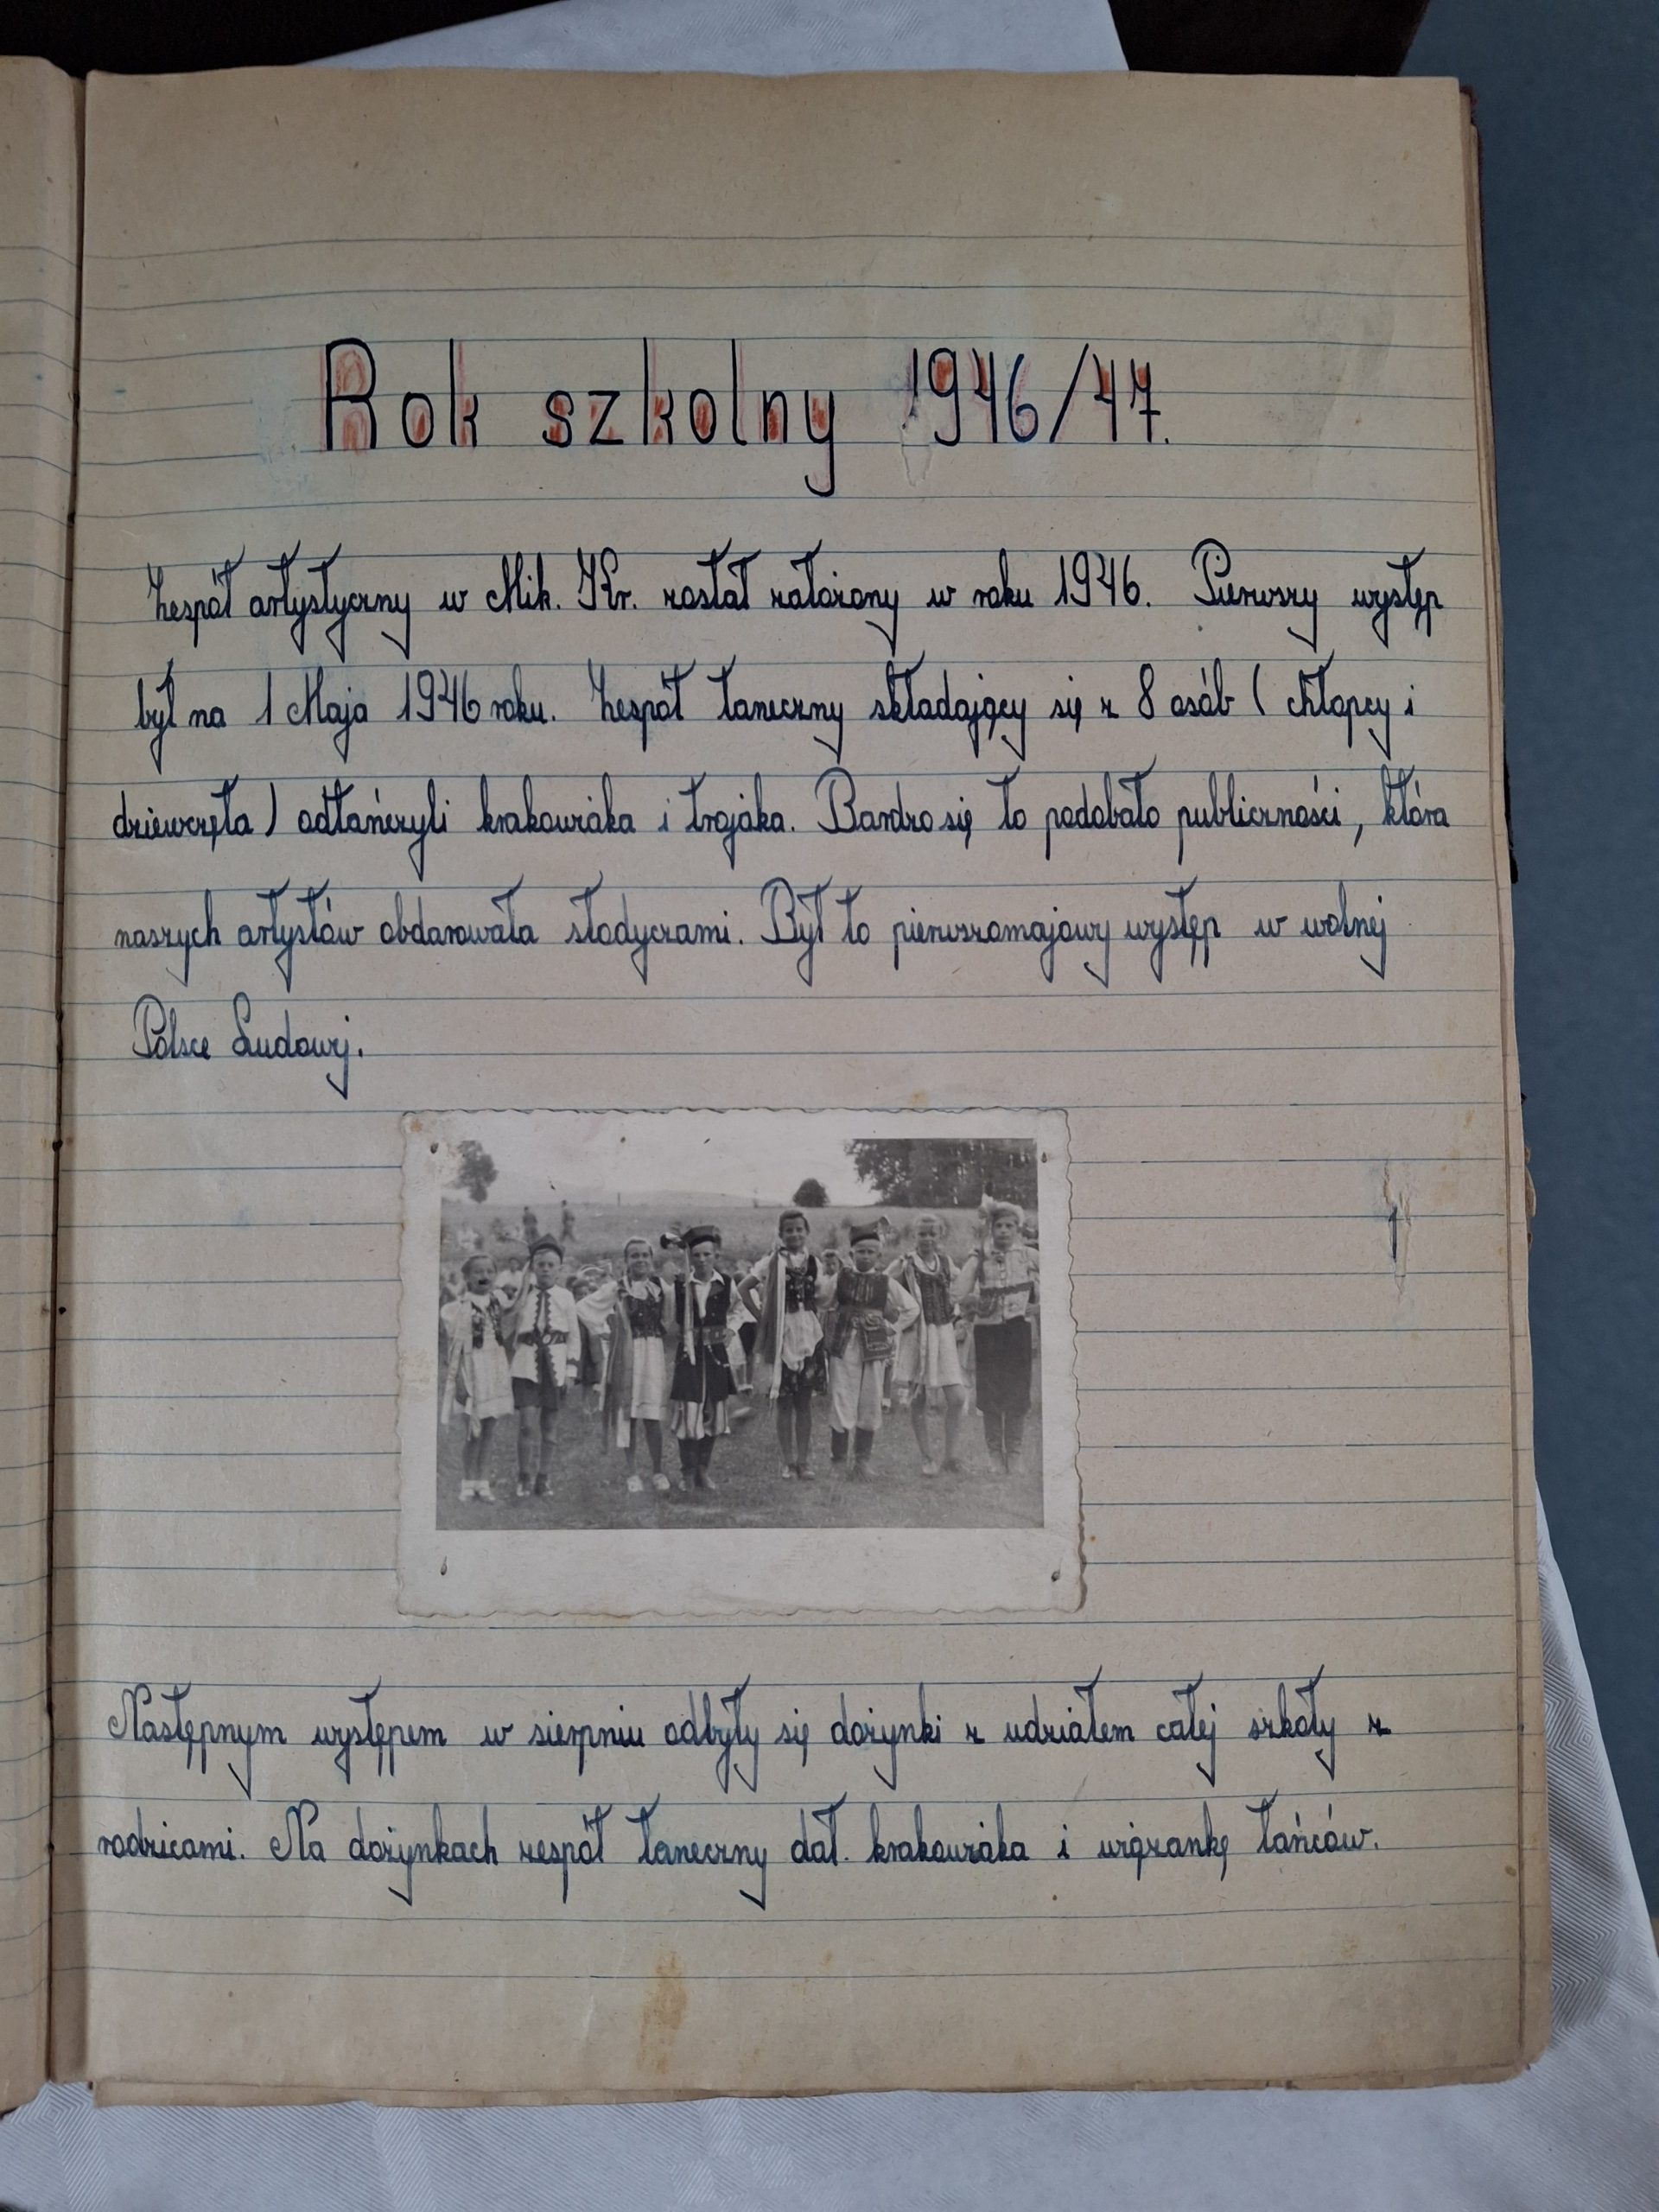 Rok szkolny 1946/47.
Zespół artystyczny w Mik. Kr. został założony w roku 1946. Pierwszy występ
był na 1 Maja 1946 roku. Zespół taneczny składający się z 8 osób ( chłopcy i
dziewczęta ) odtańczyli krakowiaka i trojaka. Bardzo się to podobało publiczności, która
naszych artystów obdarowała słodyczami. Był to pierwszomajowy występ w wolnej
Polsce Ludowej.
Następnym występem w sierpniu odbyły się dożynki z udziałem całej szkoły z
rodzicami. Na dożynkach zespół taneczny dał. krakowiaka i wiązankę tańców.